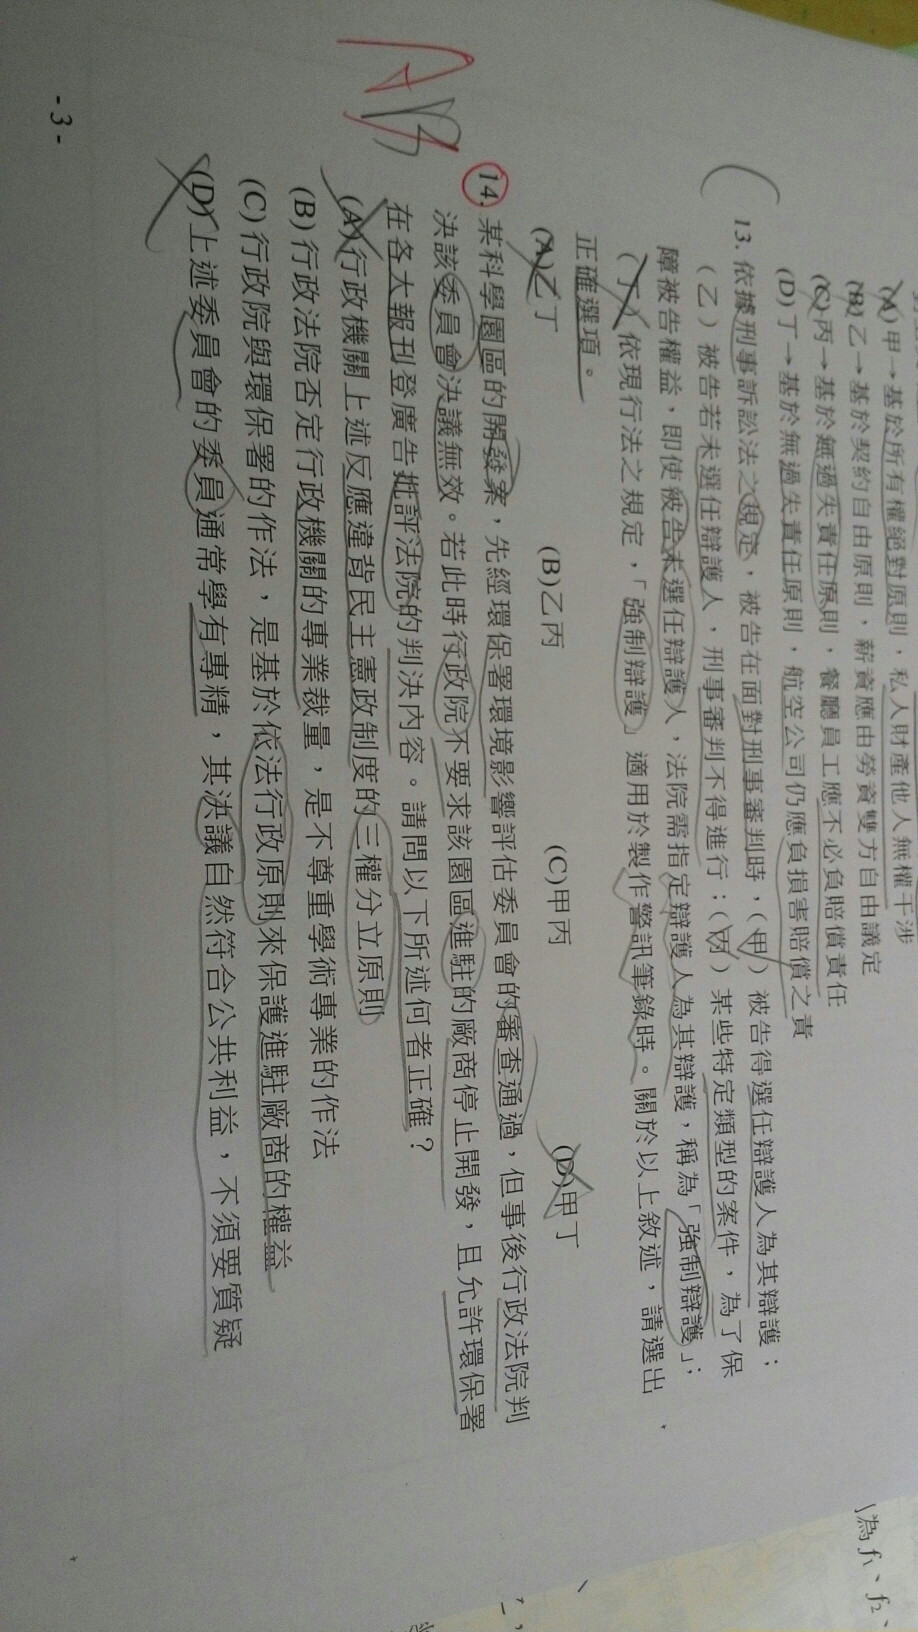 (A)甲→基於所有權絕對原則，私人財產他人無權干涉
(B)乙→基於契約自由原則，薪資應由勞資雙方自由議定
(C)丙→基於無過失責任原則，餐廳員工應不必負賠償責任
(D)丁→基於無過失責任原則，航空公司仍應負損害賠償之責
13.依據刑事訴訟法之規定，被告在面對刑事審判時，(甲)被告得選任辯護人為其辯護；
(乙)被告若未選任辯護人，刑事審判不得進行；(丙)某些特定類型的案件，為了保
障被告權益，即使被告未選任辯護人，法院需指定辯護人為其辯護，稱為「強制辯護」；
(丁)依現行法之規定，「強制辯護」適用於製作警訊筆錄時。關於以上敘述，請選出
正確選項。
(A)乙丁 (B)乙丙 (C)甲丙 (D)甲丁
AB
14.某科學園區的開發案，先經環保署環境影響評估委員會的審查通過，但事後行政法院判
決該委員會決議無效。若此時行政院不要求該園區進駐的廠商停止開發，且允許環保署
在各大報刊登廣告批評法院的判決內容。請問以下所述何者正確？
(A)行政機關上述反應違背民主憲政制度的三權分立原則
(B)行政法院否定行政機關的專業裁量，是不尊重學術專業的作法
(C)行政院與環保署的作法，是基於依法行政原則來保護進駐廠商的權益
(D)上述委員會的委員通常學有專精，其決議自然符合公共利益，不須要質疑
- 3 -
為 f₁、f₂、